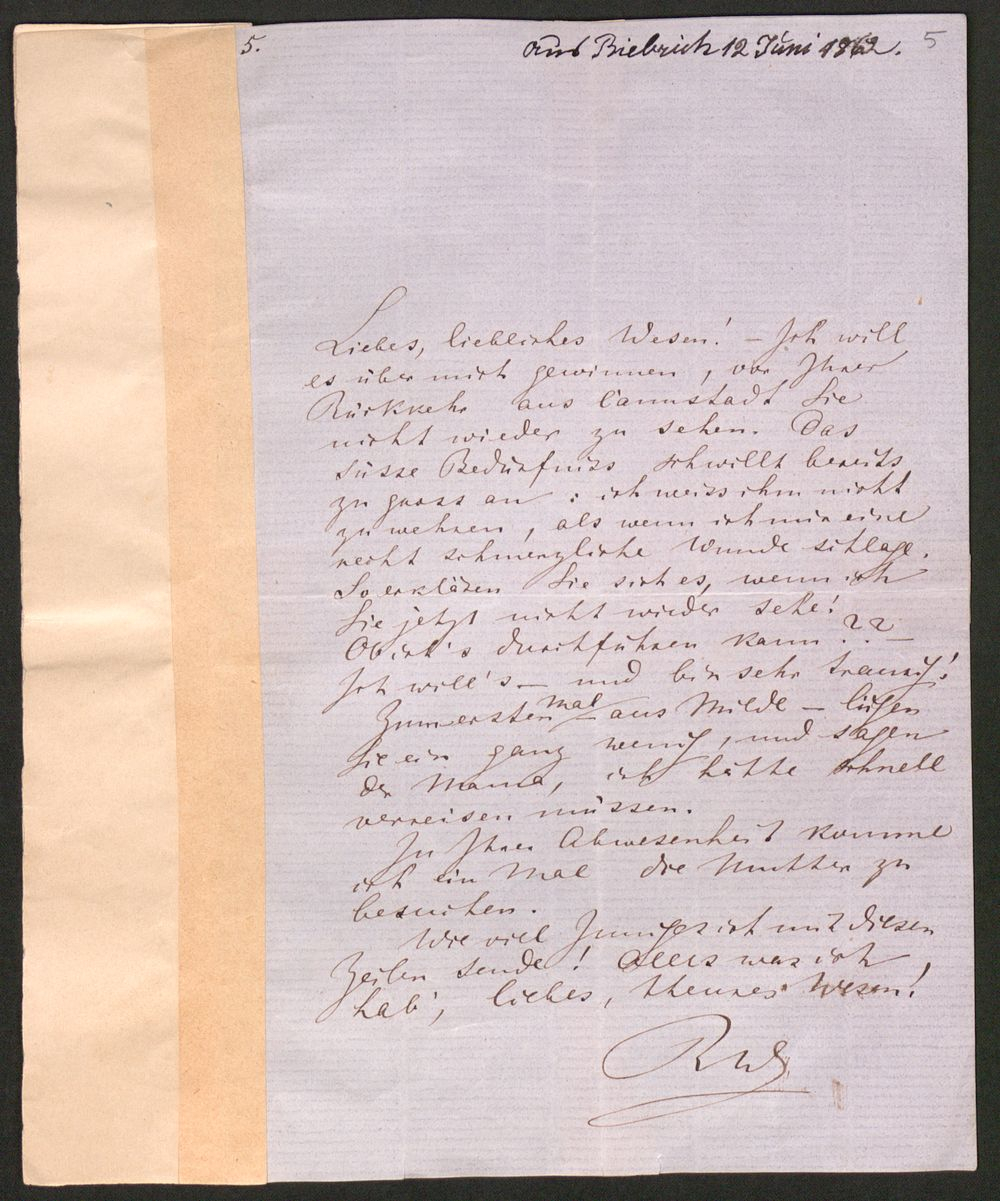 5.
aus Biebrich 12 Juni 1862.
5
Liebes, liebliches Wesen! – Ich will
es über mich gewinnen, vor Ihrer
Rückkehr aus Cannstadt Sie
nicht wieder zu sehen. Das
süsse Bedürfniss schwillt bereits
zu gross an: ich weiss ihm nicht
zu wehren, als wenn ich mir eine
recht schmerzliche Wunde schlage.
So erklären Sie sich es, wenn ich
Sie jetzt nicht wieder sehe!
Ob ich's durchführen kann??–
Ich will's – und bin sehr traurig!
Zum ersten mal – aus Milde – lügen
Sie ein ganz wenig, und sagen
der Mama, ich hätte schnell
verreisen müssen.
In Ihrer Abwesenheit komme
ich ein Mal die Mutter zu
besuchen.
Wie viel Inniges ich mit diesen
Zeilen sende! Alles was ich
hab', liebes, theures Wesen!
RW